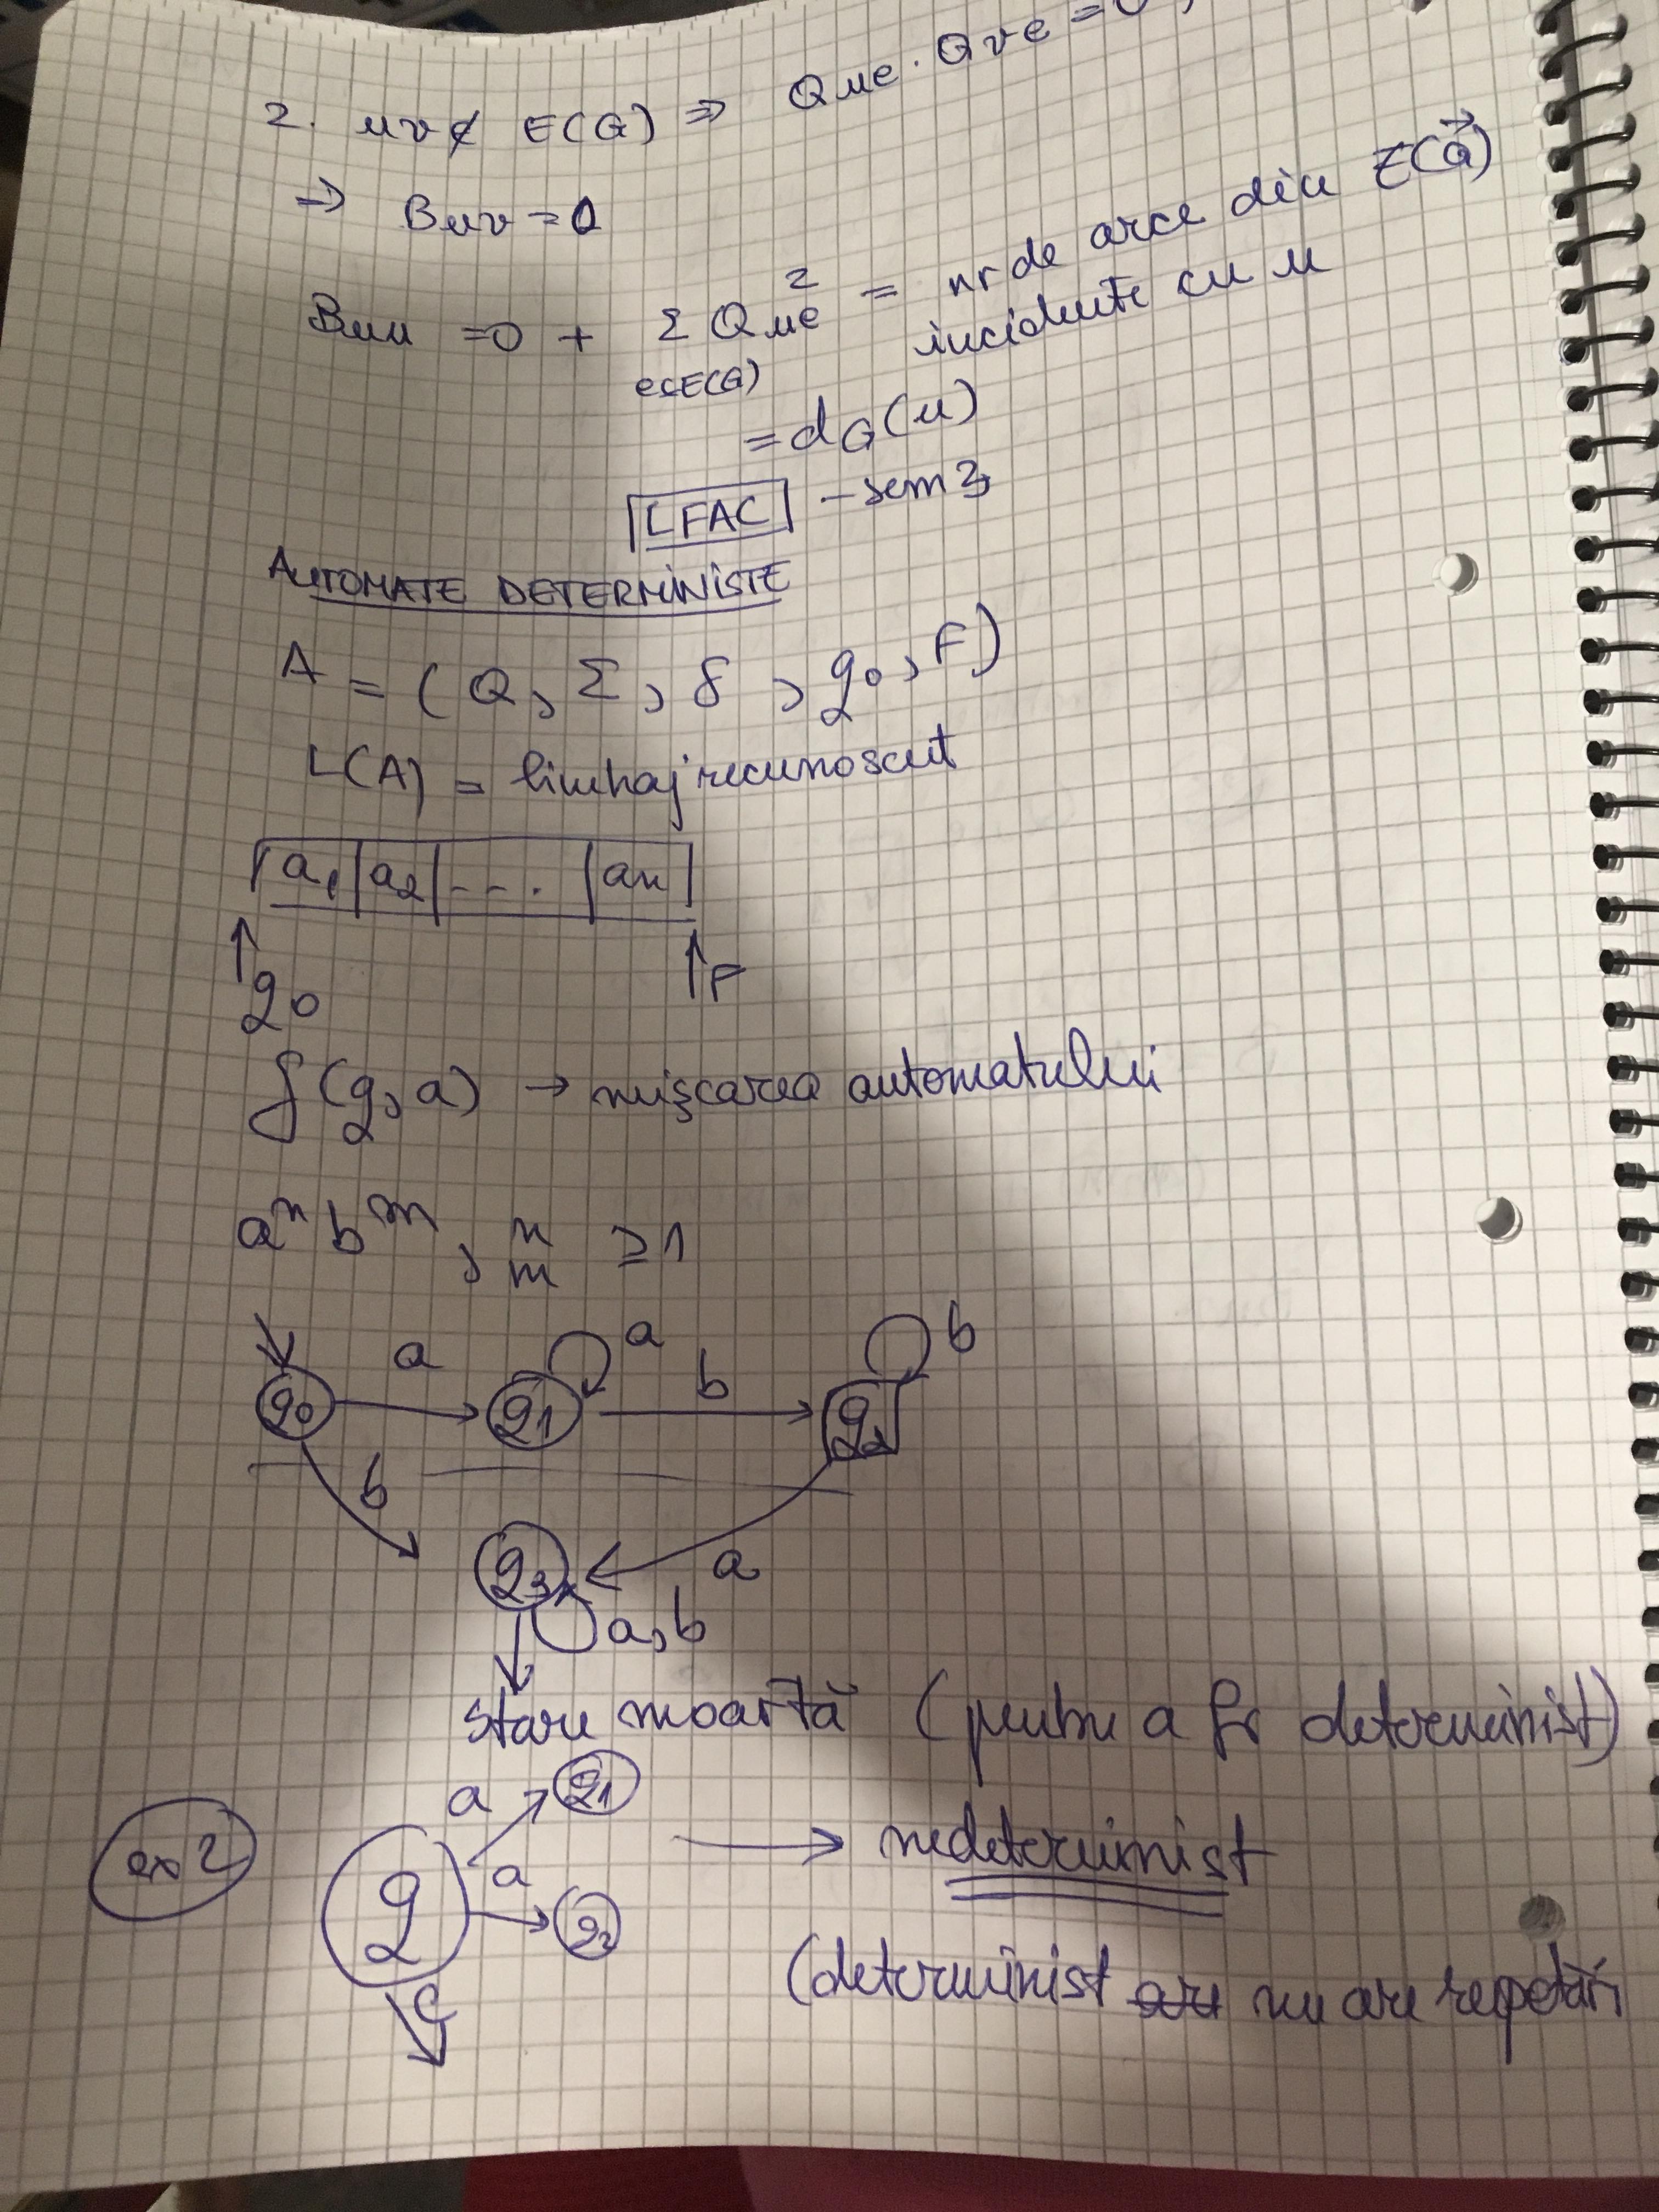 2. uv ∉ E(G) ⇒ Que · Qve = 0,
→ Buv = 0
Buu = 0 + Σ Que² = nr de arce din E(G⃗)
e∈E(G)
incidente cu u
= dG(u)
LFAC - sem 3
AUTOMATE DETERMINISTE
A = (Q, Σ, δ, q0, F)
L(A) = limbaj recunoscut
a1 | a2 | --- . | an
↑ q0 ↑ F
δ(q, a) → mișcarea automatului
aⁿ bᵐ, n m ≥ 1
q0 a q1 a b q2 b
b q3 a
a, b
stare moartă (pentru a fi determinist)
ex 2
q a q1 → nedeterminist
a q2
c
(determinist are nu are repetări